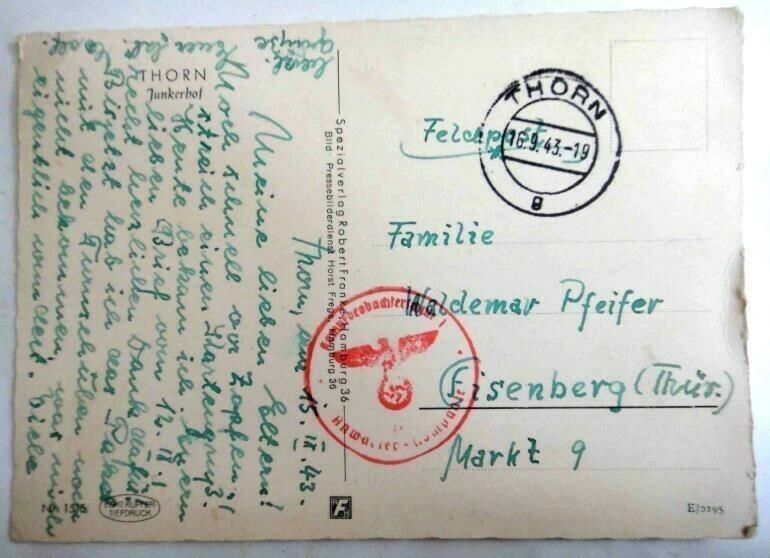 THORN
Junkerhof
Thorn, am 15. IX. 43.
Meine lieben Eltern!
Noch schnell vor Zapfen-
streich einen Kartengruß!
Heute bekam ich Euren
lieben Brief vom 12. IX.!
Recht herzlichen Dank dafür!
Bis jetzt hab ich das Paket
mit den Turnschuhen noch
nicht bekommen, was mich
eigentlich wundert. Viele
herzl.
Grüße
Euer
Spezialverlag Robert Franke, Hamburg 36
Bild: Pressebilderdienst Horst Frege, Hamburg 36
THORN
16.9.43.-19
g
Feldpost
Familie
Waldemar Pfeifer
Eisenberg (Thür.)
Markt 9
Anwärter-Kompanie
Nr. 1515
ECHT KUPFER-
TIEFDRUCK
F
E/5195